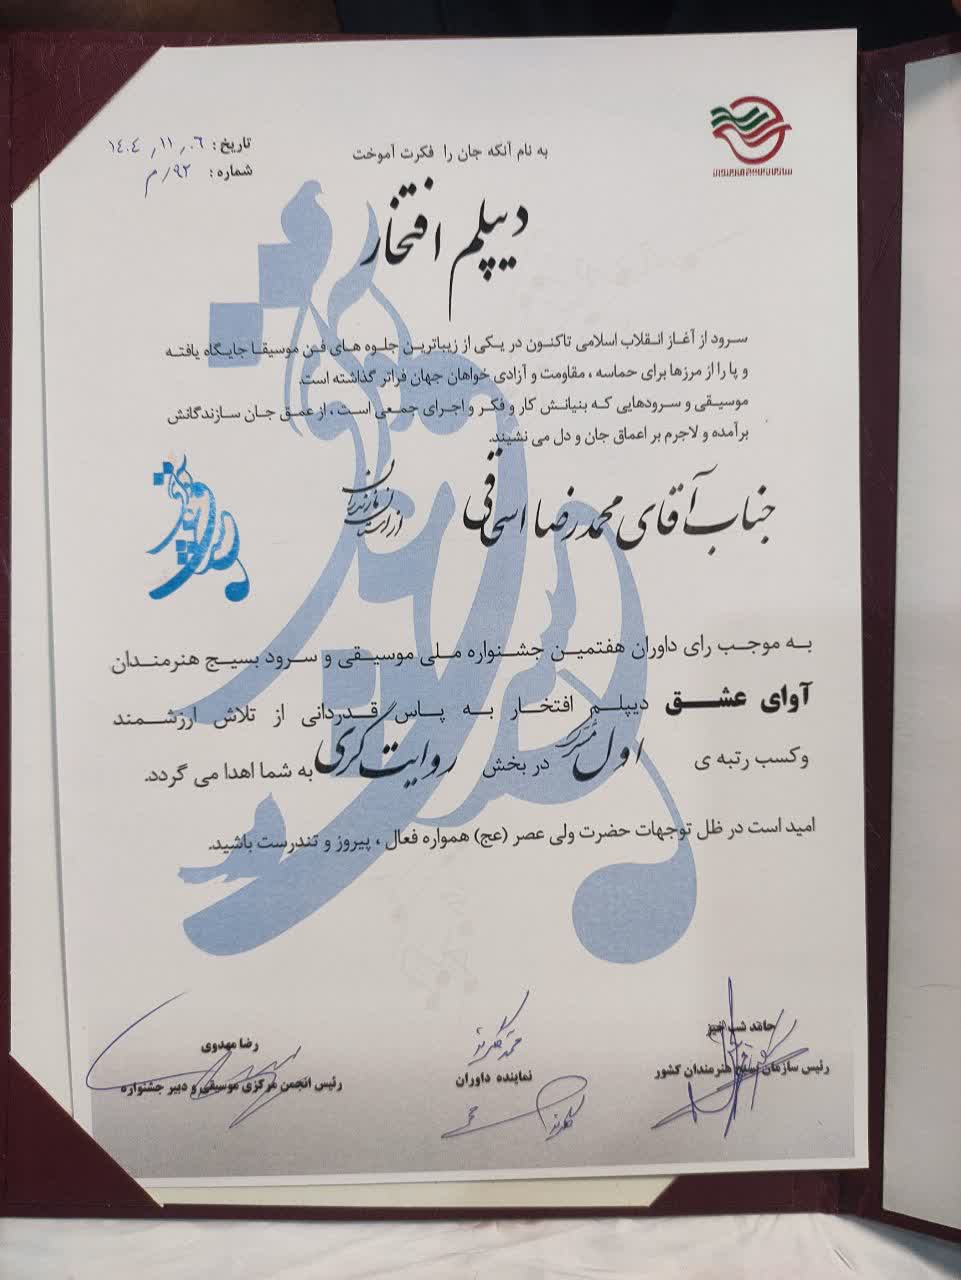 سازمان بسیج هنرمندان
به نام آنکه جان را فکرت آموخت
تاریخ: ۱۴۰۴٫۱۱٫۰۶
شماره: ۹۲٫م
دیپلم افتخار
سرود از آغاز انقلاب اسلامی تاکنون در یکی از زیباترین جلوه های فن موسیقا جایگاه یافته
و پا را از مرزها برای حماسه ، مقاومت و آزادی خواهان جهان فراتر گذاشته است.
موسیقی و سرودهایی که بنیانش کار و فکر و اجرای جمعی است ، از عمق جان سازندگانش
برآمده و لاجرم بر اعماق جان و دل می نشیند.
جناب آقای محمدرضا اسحاقی از استان مازندران
به موجب رای داوران هفتمین جشنواره ملی موسیقی و سرود بسیج هنرمندان
آوای عشق دیپلم افتخار به پاس قدردانی از تلاش ارزشمند
وکسب رتبه ی اول مشترک در بخش روایت گری به شما اهدا می گردد.
امید است در ظل توجهات حضرت ولی عصر (عج) همواره فعال ، پیروز و تندرست باشید.
حامد شب خیز
رئیس سازمان بسیج هنرمندان کشور
نماینده داوران
رضا مهدوی
رئیس انجمن مرکزی موسیقی و دبیر جشنواره